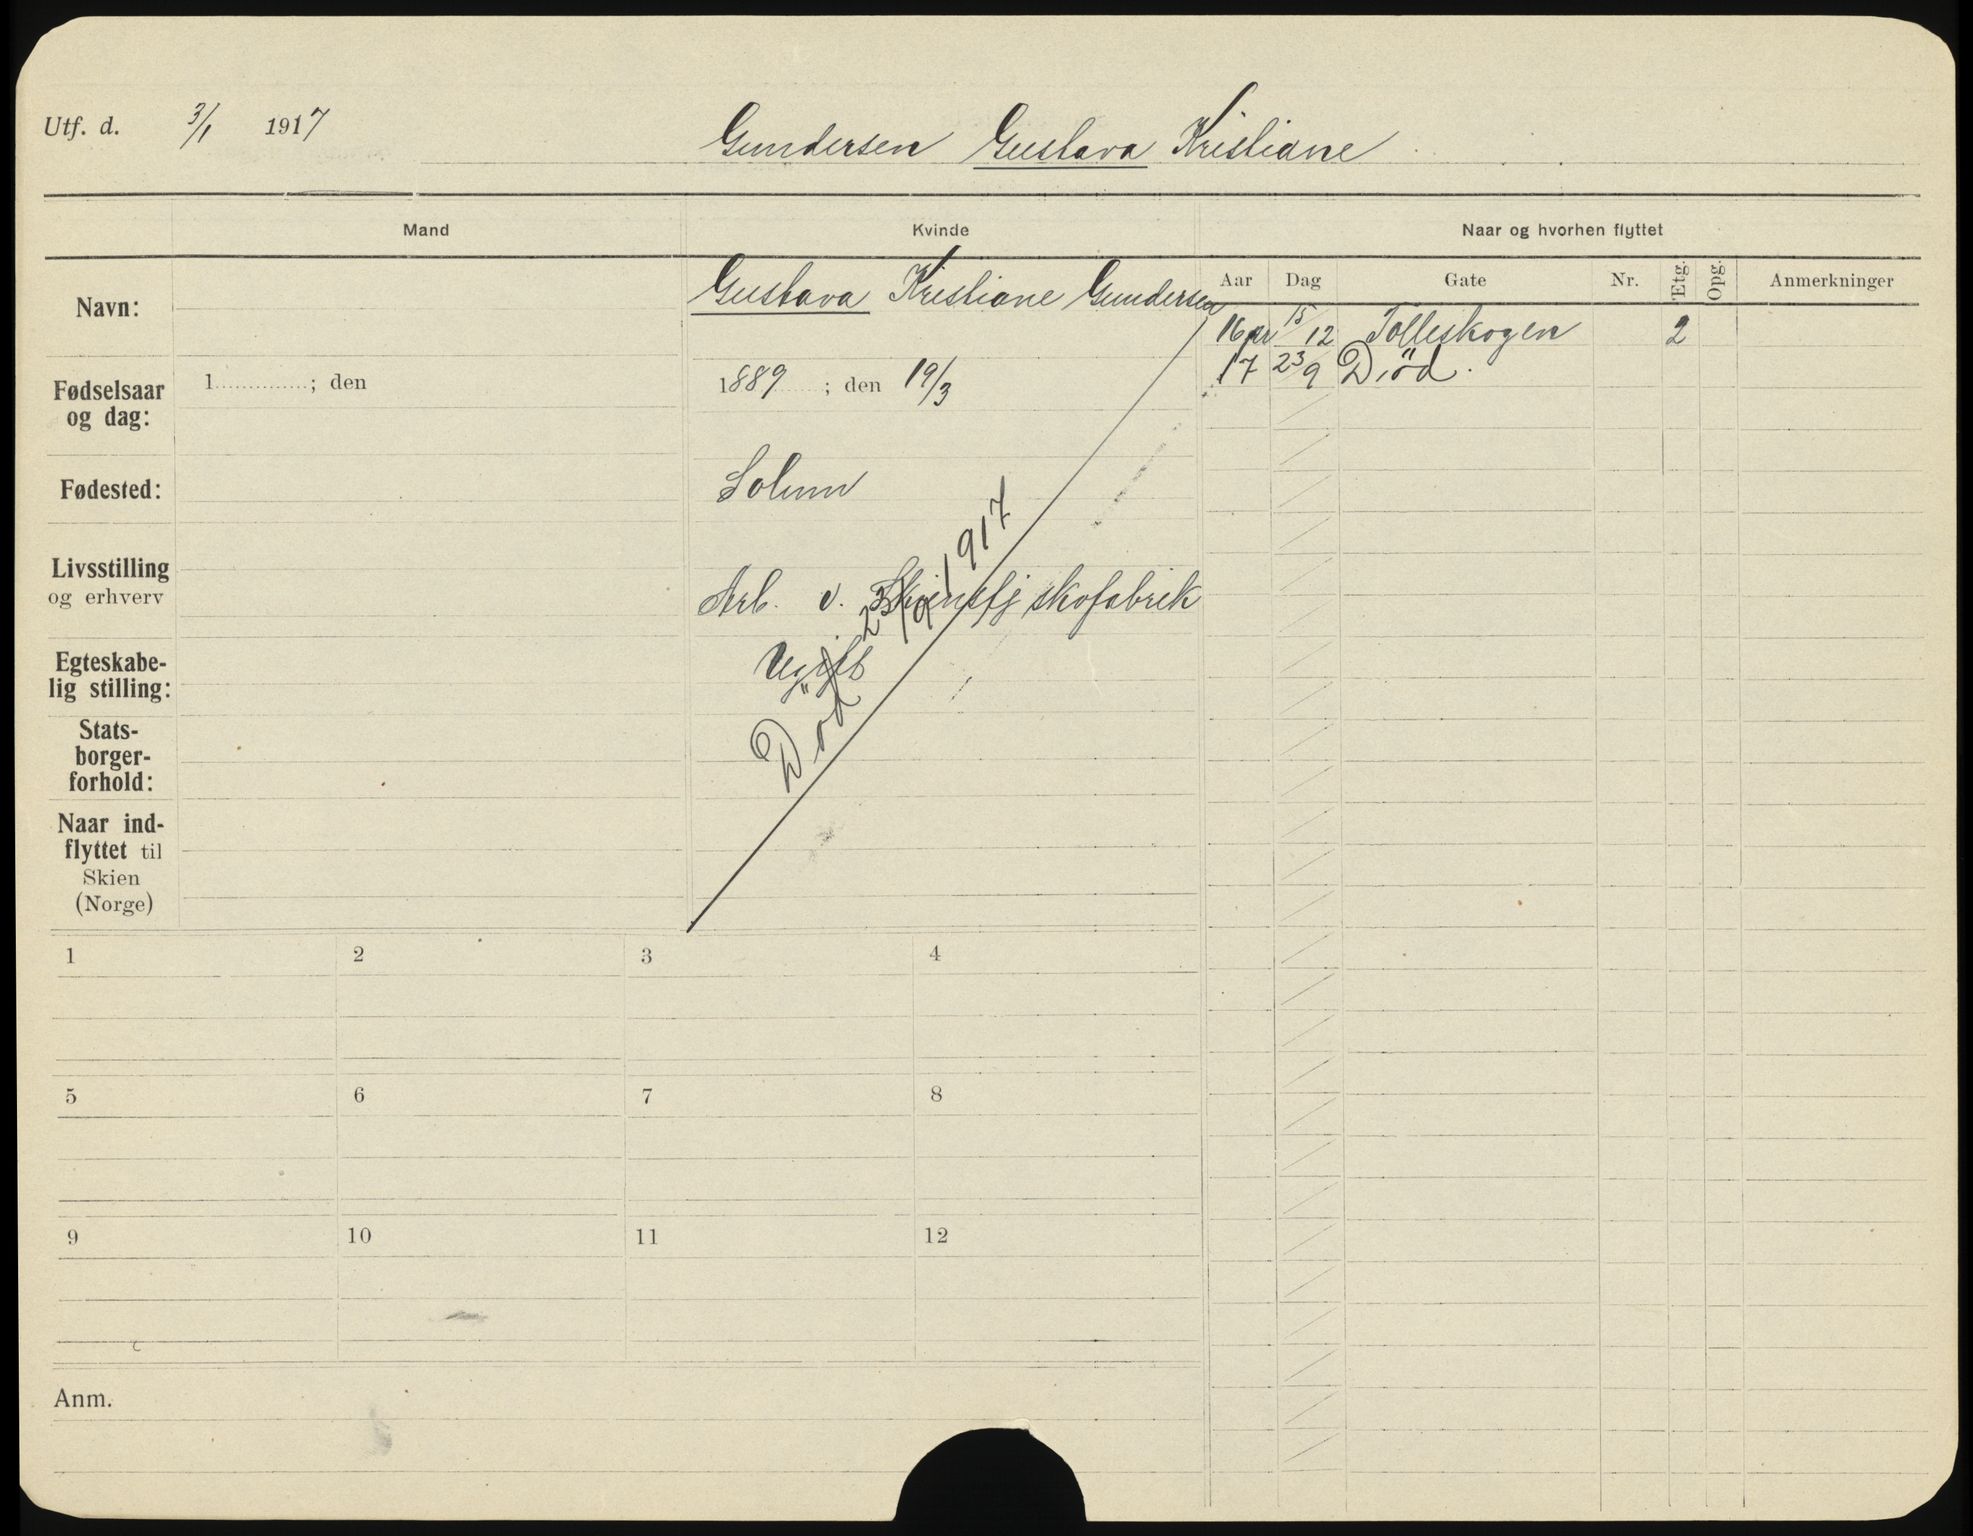 Utf. d. 3/1 1917
Gundersen Gustava Kristiane
Mand Kvinde Naar og hvorhen flyttet
Navn: Gustava Kristiane Gundersen
Aar Dag Gate Nr. Etg. Opg. Anmerkninger
16 pr 15/12 Tolleskogen 2
17 23/9 Död.
Fødselsaar og dag: 1 ; den 1889 ; den 19/3
Fødested: Solum
Livsstilling og erhverv Arb. v. Skiensfj skofabrik
Egteskabe-
lig stilling: Ugift
Död 23/9 1917
Stats-
borger-
forhold:
Naar ind-
flyttet til
Skien
(Norge)
1 2 3 4
5 6 7 8
9 10 11 12
Anm.